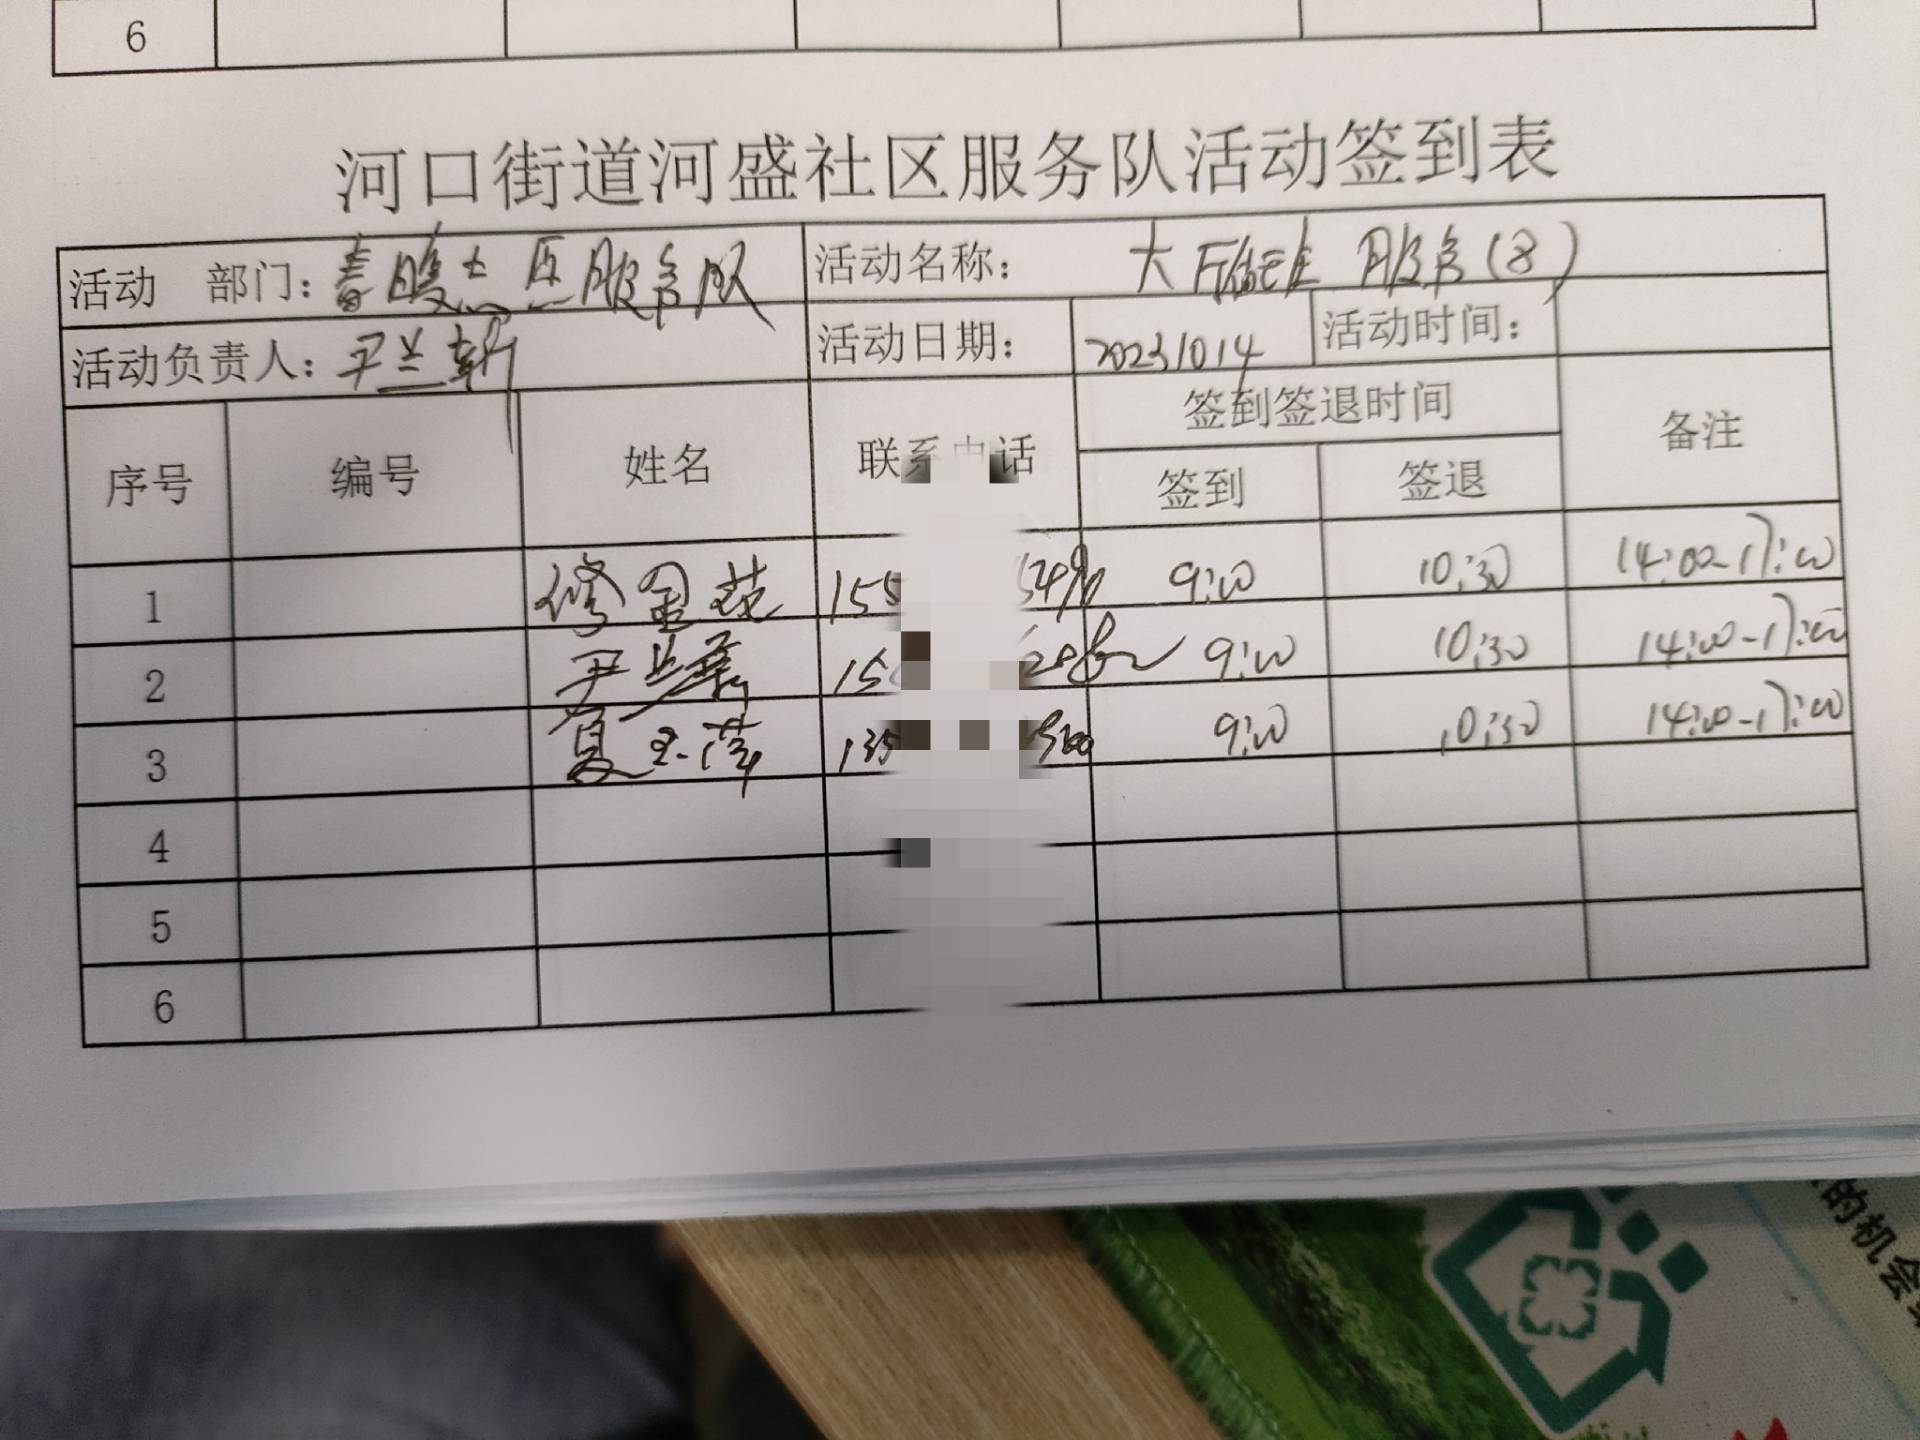 6
河口街道河盛社区服务队活动签到表
活动 部门：春暖 服务队 活动名称： 大 服务(8)
活动负责人：尹兰 活动日期： 20231014 活动时间：
序号 编号 姓名 联系电话 签到签退时间 备注
签到 签退
1 修 155 9:00 10:30 14:00-17:00
2 尹兰 15 9:00 10:30 14:00-17:00
3 夏玉萍 135 9:00 10:30 14:00-17:00
4
5
6
的机会